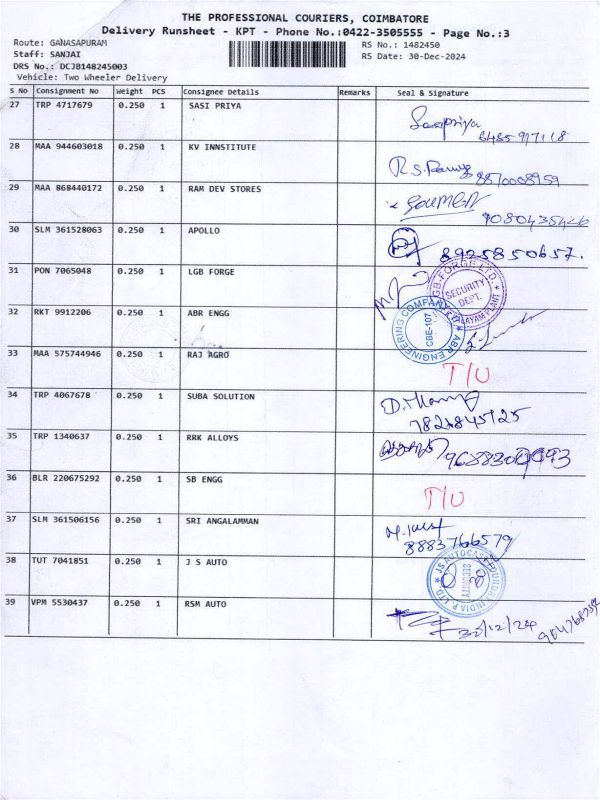 THE PROFESSIONAL COURIERS, COIMBATORE
Delivery Runsheet - KPT - Phone No.:0422-3505555 - Page No.:3
Route: GANASAPURAM
RS No.: 1482450
Staff: SANJAI
RS Date: 30-Dec-2024
DRS No.: DCJB148245003
Vehicle: Two Wheeler Delivery
S No Consignment No Weight PCS Consignee Details Remarks Seal & Signature
27 TRP 4717679 0.250 1 SASI PRIYA Sasipriya
28 MAA 944603018 0.250 1 KV INNSTITUTE R.S.
8870008959
29 MAA 868440172 0.250 1 RAM DEV STORES GOUMGN
9080435426
30 SLM 361528063 0.250 1 APOLLO 8925850657.
31 PON 7065048 0.250 1 LGB FORGE
LGB-FORGE LTD
SECURITY
DEPT.
32 RKT 9912206 0.250 1 ABR ENGG
ABR ENGINEERING COMPANY
CBE-107
33 MAA 575744946 0.250 1 RAJ AGRO T/U
34 TRP 4067678 0.250 1 SUBA SOLUTION
7824845725
35 TRP 1340637 0.250 1 RRK ALLOYS
36 BLR 220675292 0.250 1 SB ENGG T/U
37 SLM 361506156 0.250 1 SRI ANGALAMMAN
8883766579
38 TUT 7041851 0.250 1 J S AUTO
JS AUTOCAST INDIA P.LTD
SECURITY
39 VPM 5530437 0.250 1 RSM AUTO 30/12/24